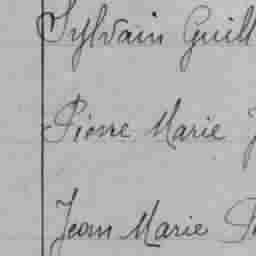 Sylvain Guill
Pierre Marie
Jean Marie